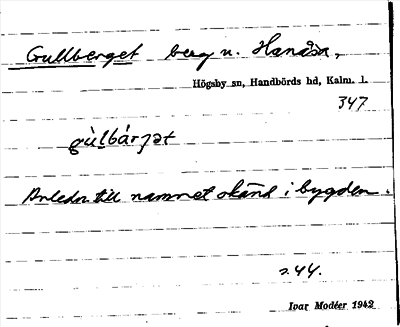 Gullberget berg n. Hanåsa,
Högsby sn, Handbörds hd, Kalm. l.
347
gùlbárjət
Anledn. till namnet okänd i bygden.
s. 44.
Ivar Modéer 1942